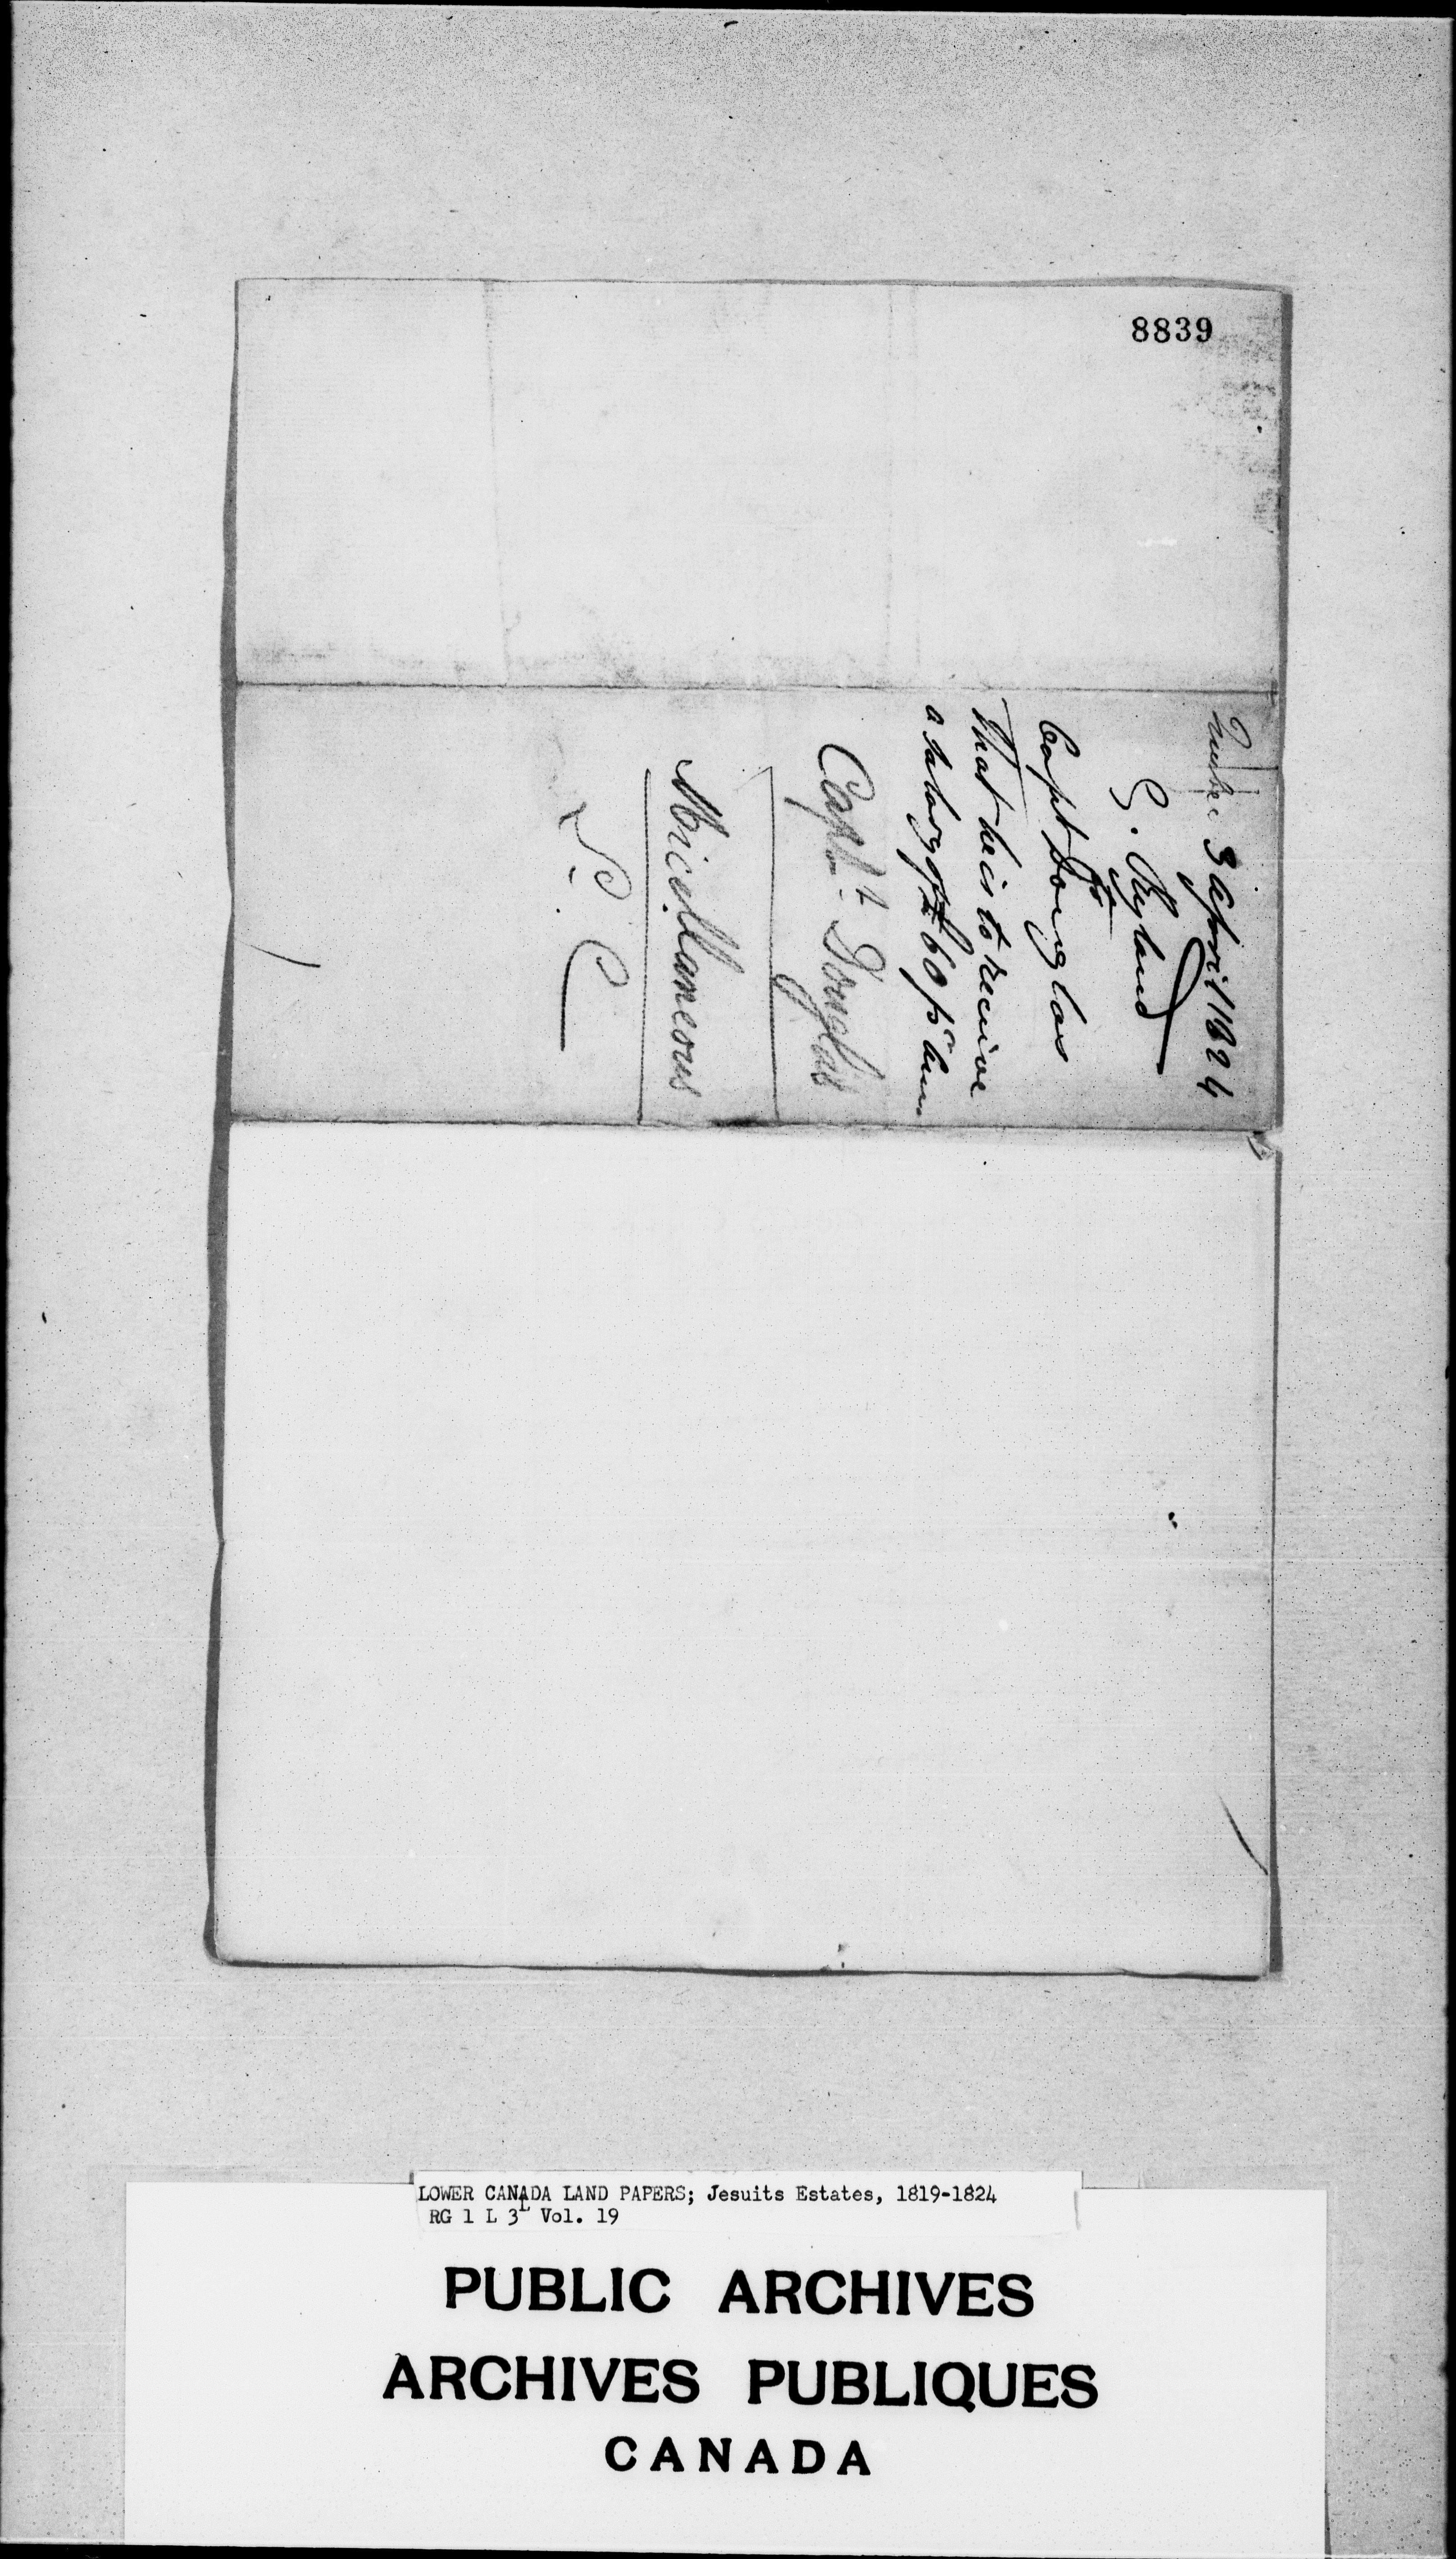 8839
Quebec 3 April 1824
G. Ryland
to
Capt Douglas
That he is to receive
a salary of £60 pr Ann.
Capt. Douglas
Micellaneous
LOWER CANADA LAND PAPERS; Jesuits Estates, 1819-1824
RG 1 L 3L Vol. 19
PUBLIC ARCHIVES
ARCHIVES PUBLIQUES
CANADA